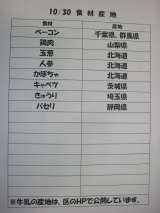 10/30 食材産地
食材 産地
ベーコン 千葉県、群馬県
鶏肉 山梨県
玉葱 北海道
人参 北海道
かぼちゃ 北海道
キャベツ 茨城県
きゅうり 埼玉県
パセリ 静岡県
※牛乳の産地は、区のHPで公開しています。